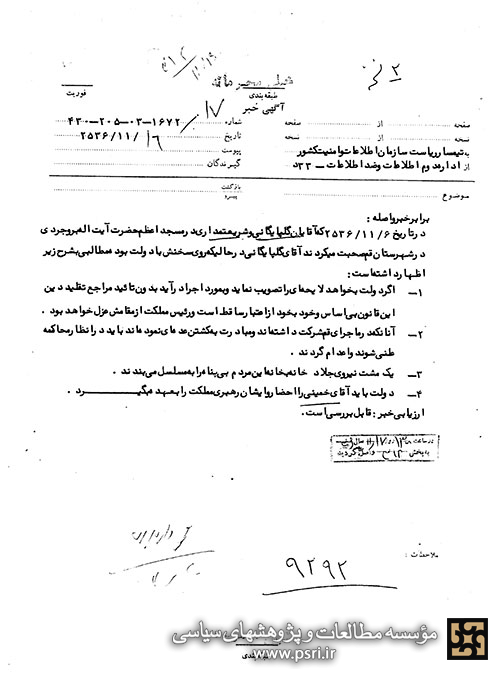 خیلی محرمانه
طبقه‌بندی
فوریت
آگهی خبر
شماره ۱۶۷۲-۰۳-۲۰۵-۴۳۰ / ۱۷
صفحه از صفحه
تاریخ ۱۶ / ۱۱ / ۲۵۳۶
نسخه از نسخه
پیوست
به تیمسار ریاست سازمان اطلاعات و امنیت کشور
گیرندگان
از اداره دوم اطلاعات و ضد اطلاعات - د۳۳
بازگشت
پیرو
موضوع :
برابر خبر واصله :
در تاریخ ۲۵۳۶/۱۱/۶ که آقایان گلپایگانی و شریعتمداری در مسجد اعظم حضرت آیت اله بروجردی
در شهرستان قم صحبت میکردند آقای گلپایگانی در حالیکه روی سخنش با دولت بود مطالبی بشرح زیر
اظهار داشته است :
۱- اگر دولت بخواهد لایحه‌ای را تصویب نماید و بمورد اجرا در آید بدون تائید مراجع تقلید دین
این قانون بی اساس و خود بخود از اعتبار ساقط است و رئیس مملکت از مقامش عزل خواهد بود .
۲- آنانکه در ماجرای قم شرکت داشته‌اند و مبادرت به کشتن عده‌ای نموده‌اند باید در انظار محاکمه
علنی شوند و اعدام گردند .
۳- یک مشت نیروی جلاد خانه بخانه این مردم بی پناه را به مسلسل می‌بندند .
۴- دولت باید آقای خمینی را احضار و ایشان رهبری مملکت را بعهده میگیرد .
ارزیابی خبر : قابل بررسی است .
ملاحظات :
۹۲۹۲
مؤسسه مطالعات و پژوهشهای سیاسی
www.psri.ir
طبقه‌بندی